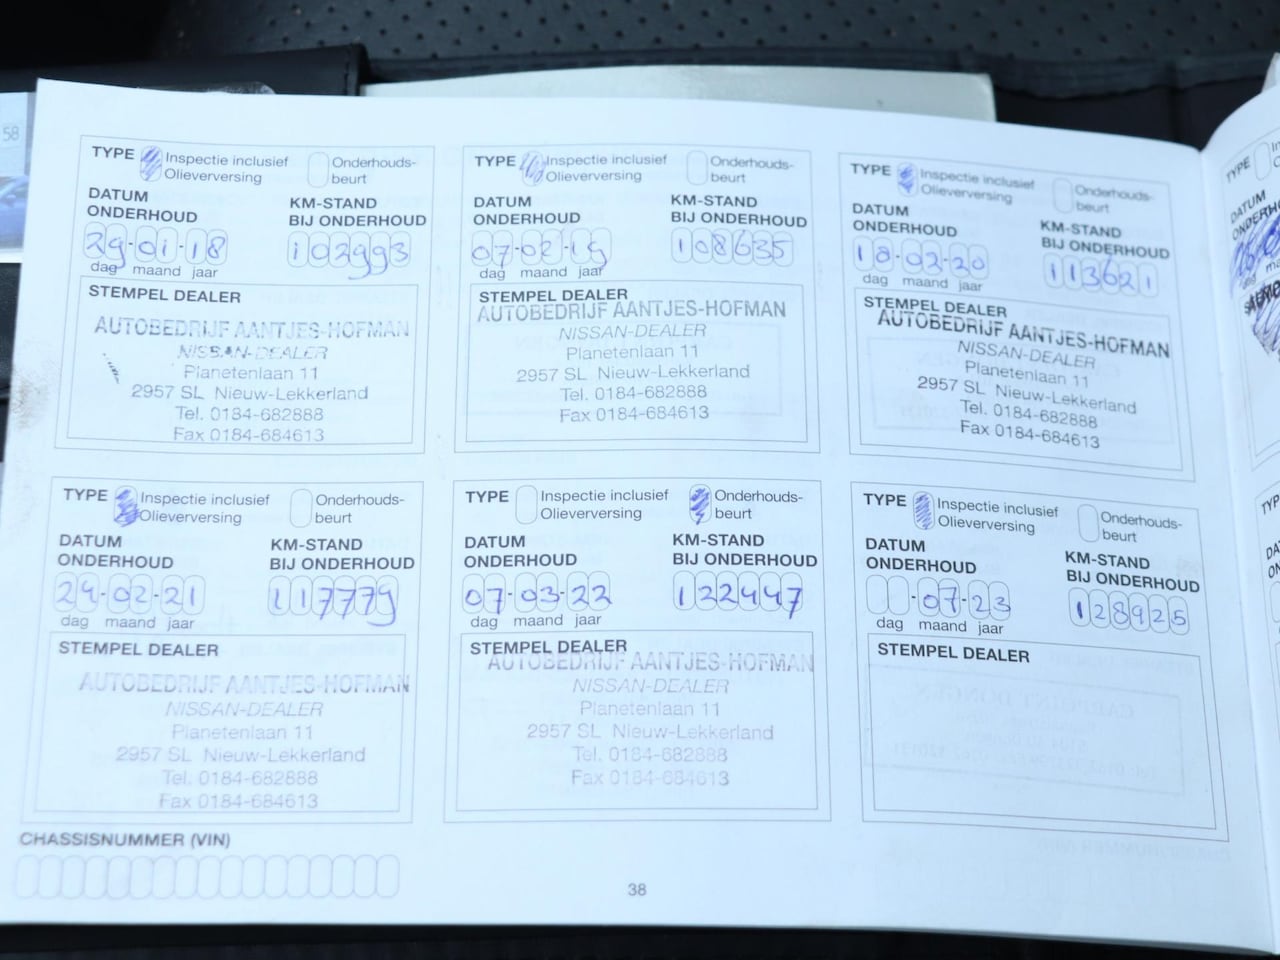 58
TYPE Inspectie inclusief Olieverversing Onderhouds-beurt
DATUM ONDERHOUD
KM-STAND BIJ ONDERHOUD
29-01-18
102993
dag maand jaar
STEMPEL DEALER
AUTOBEDRIJF AANTJES-HOFMAN
NISSAN-DEALER
Planetenlaan 11
2957 SL Nieuw-Lekkerland
Tel. 0184-682888
Fax 0184-684613
TYPE Inspectie inclusief Olieverversing Onderhouds-beurt
DATUM ONDERHOUD
KM-STAND BIJ ONDERHOUD
07-02-19
108635
dag maand jaar
STEMPEL DEALER
AUTOBEDRIJF AANTJES-HOFMAN
NISSAN-DEALER
Planetenlaan 11
2957 SL Nieuw-Lekkerland
Tel. 0184-682888
Fax 0184-684613
TYPE Inspectie inclusief Olieverversing Onderhouds-beurt
DATUM ONDERHOUD
KM-STAND BIJ ONDERHOUD
18-02-20
113621
dag maand jaar
STEMPEL DEALER
AUTOBEDRIJF AANTJES-HOFMAN
NISSAN-DEALER
Planetenlaan 11
2957 SL Nieuw-Lekkerland
Tel. 0184-682888
Fax 0184-684613
TYPE Inspectie inclusief Olieverversing Onderhouds-beurt
DATUM ONDERHOUD
KM-STAND BIJ ONDERHOUD
24-02-21
117779
dag maand jaar
STEMPEL DEALER
AUTOBEDRIJF AANTJES-HOFMAN
NISSAN-DEALER
Planetenlaan 11
2957 SL Nieuw-Lekkerland
Tel. 0184-682888
Fax 0184-684613
TYPE Inspectie inclusief Olieverversing Onderhouds-beurt
DATUM ONDERHOUD
KM-STAND BIJ ONDERHOUD
07-03-22
122447
dag maand jaar
STEMPEL DEALER
AUTOBEDRIJF AANTJES-HOFMAN
NISSAN-DEALER
Planetenlaan 11
2957 SL Nieuw-Lekkerland
Tel. 0184-682888
Fax 0184-684613
TYPE Inspectie inclusief Olieverversing Onderhouds-beurt
DATUM ONDERHOUD
KM-STAND BIJ ONDERHOUD
-07-23
128925
dag maand jaar
STEMPEL DEALER
CHASSISNUMMER (VIN)
38